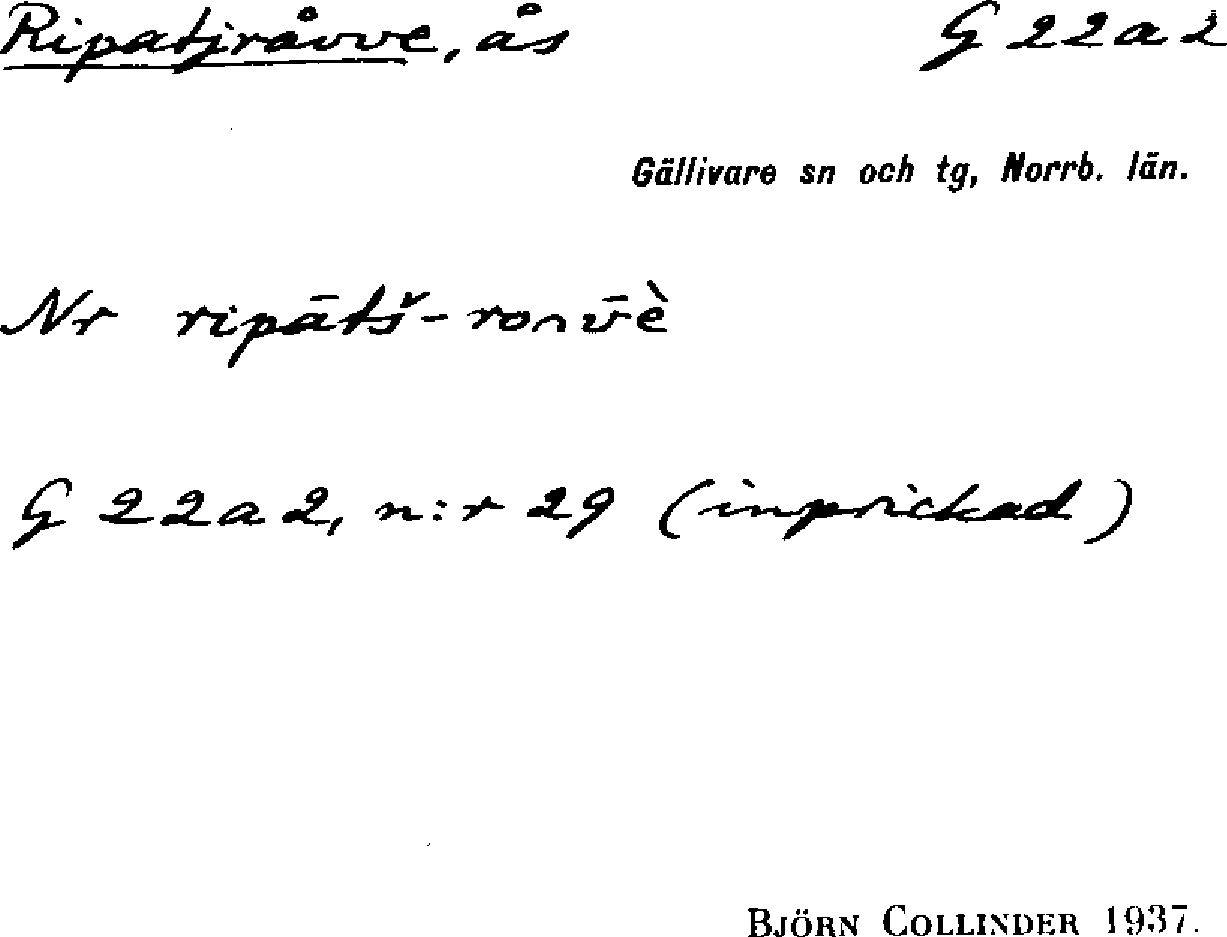 Ripatjråvve, ås G 22a2
Gällivare sn och tg, Norrb. län.
Nr ripātš-ro∩v̄è
G 22a2, n:r 29 (inprickad)
BJÖRN COLLINDER 1937.